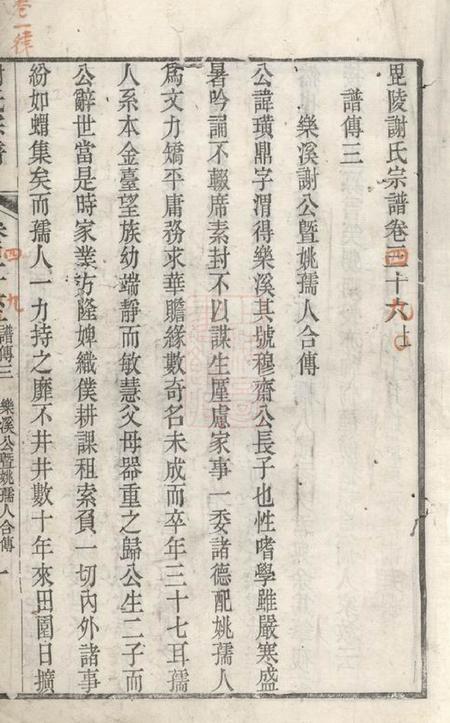 毘陵謝氏宗譜卷三十六上
譜傳三
樂溪謝公暨姚孺人合傳
公諱璜鼎字渭得樂溪其號穆齋公長子也性嗜學雖嚴寒盛
暑吟誦不輟席素封不以謀生厪慮家事一委諸德配姚孺人
爲文力矯平庸務求華贍緣數奇名未成而卒年三十七耳孺
人系本金臺望族幼端靜而敏慧父母器重之歸公生二子而
公辭世當是時家業方隆婢織僕耕課租索負一切內外諸事
紛如蝟集矣而孺人一力持之靡不井井數十年來田園日擴
譜傳三 樂溪公暨姚孺人合傳 一
四九
四九